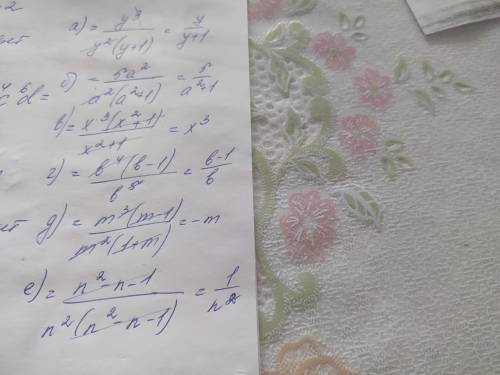 а) = y³/y²(y+1) = y/y+1
б) = 5a²/a²(a²+1) = 5/a²+1
в) = x³(x²+1)/x²+1 = x³
г) = b⁴(b-1)/b⁵ = b-1/b
д) = m³(m-1)/m²(1+m) = -m
е) = n²-n-1/n²(n²-n-1) = 1/n²